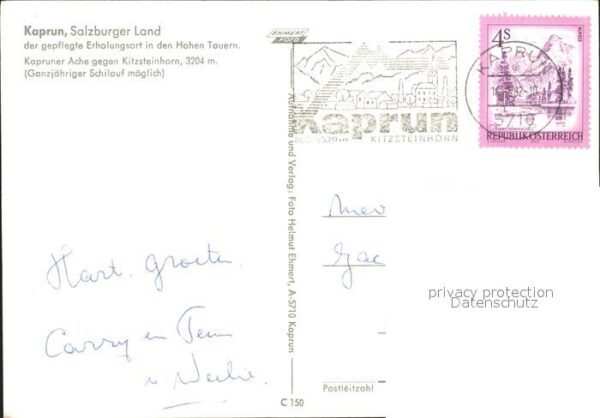 Kaprun, Salzburger Land
der gepflegte Erholungsort in den Hohen Tauern.
Kapruner Ache gegen Kitzsteinhorn, 3204 m.
(Ganzjähriger Schilauf möglich)
EHMERT
FOTO
Kaprun
KITZSTEINHORN
KAPRUN
5710
4S
REPUBLIK ÖSTERREICH
Aufnahme und Verlag: Foto Helmut Ehmert, A-5710 Kaprun
Hart. Groeten
Carry en Teun
Mev
privacy protection
Datenschutz
Postleitzahl
C 150